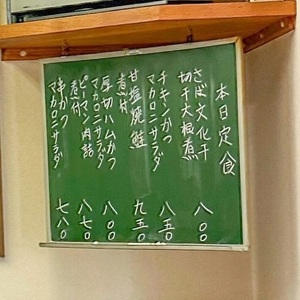 本日定食
さば文化干
切干大根煮
八〇〇
チキンかつ
マカロニサラダ
八五〇
甘塩焼鮭
煮付
九五〇
厚切ハムかつ
マカロニサラダ
八〇〇
ピーマン肉詰
煮付
八七〇
串かつ
マカロニサラダ
七八〇